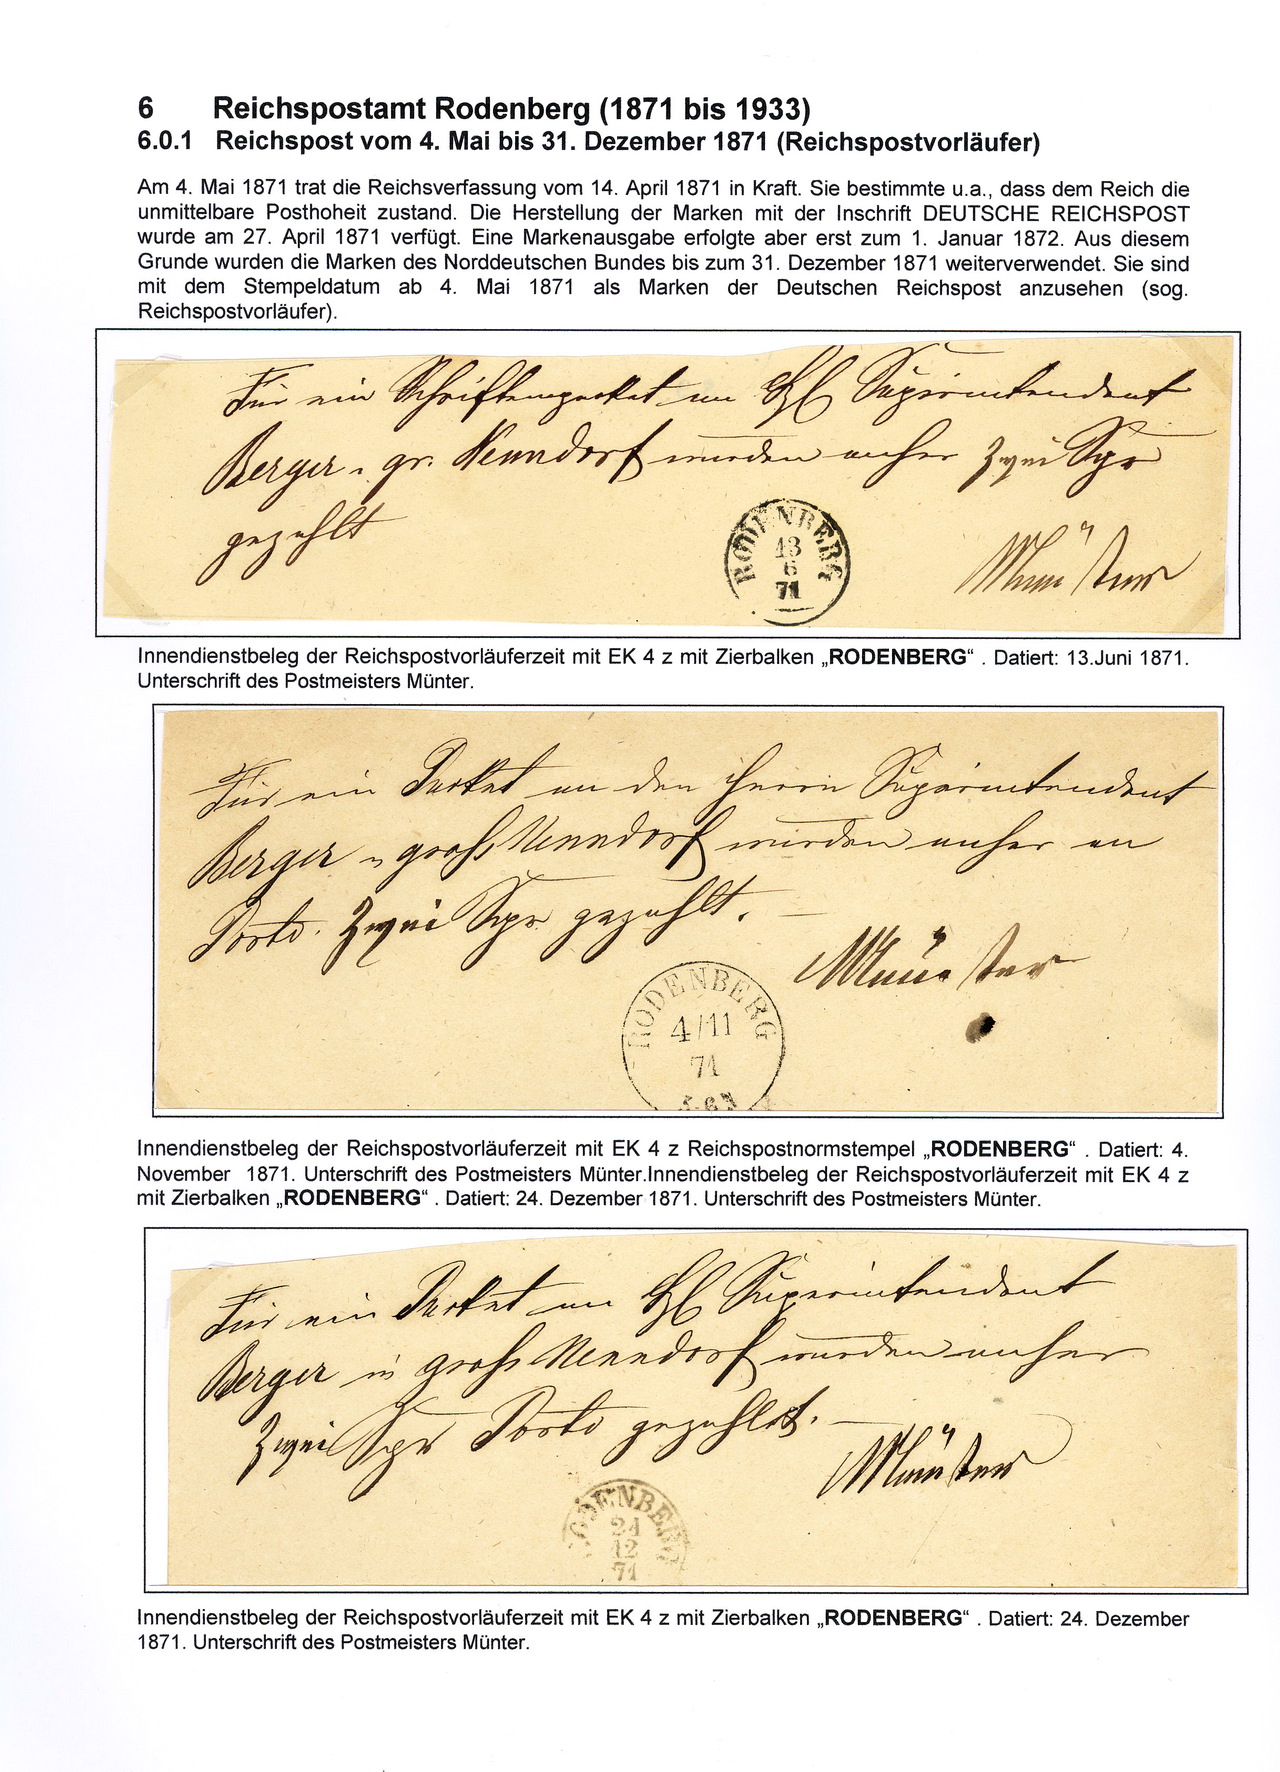 6 Reichspostamt Rodenberg (1871 bis 1933)
6.0.1 Reichspost vom 4. Mai bis 31. Dezember 1871 (Reichspostvorläufer)
Am 4. Mai 1871 trat die Reichsverfassung vom 14. April 1871 in Kraft. Sie bestimmte u.a., dass dem Reich die
unmittelbare Posthoheit zustand. Die Herstellung der Marken mit der Inschrift DEUTSCHE REICHSPOST
wurde am 27. April 1871 verfügt. Eine Markenausgabe erfolgte aber erst zum 1. Januar 1872. Aus diesem
Grunde wurden die Marken des Norddeutschen Bundes bis zum 31. Dezember 1871 weiterverwendet. Sie sind
mit dem Stempeldatum ab 4. Mai 1871 als Marken der Deutschen Reichspost anzusehen (sog.
Reichspostvorläufer).
Für ein Schriftenpacket an Superintendent
Berger gr. Nenndorf wurden anher Zwei Sgr
gezahlt
RODENBERG
13
6
71
Münster
Innendienstbeleg der Reichspostvorläuferzeit mit EK 4 z mit Zierbalken „RODENBERG“ . Datiert: 13.Juni 1871.
Unterschrift des Postmeisters Münter.
Für ein Packet an den Herrn Superintendent
Berger groß Nenndorf wurden anher an
Porto Zwei Sgr gezahlt.
Münster
RODENBERG
4/11
71
Innendienstbeleg der Reichspostvorläuferzeit mit EK 4 z Reichspostnormstempel „RODENBERG“ . Datiert: 4.
November 1871. Unterschrift des Postmeisters Münter.Innendienstbeleg der Reichspostvorläuferzeit mit EK 4 z
mit Zierbalken „RODENBERG“ . Datiert: 24. Dezember 1871. Unterschrift des Postmeisters Münter.
Für ein Packet an Superintendent
Berger in groß Nenndorf wurden anher
Zwei Sgr Porto gezahlt.
Münster
RODENBERG
24
12
71
Innendienstbeleg der Reichspostvorläuferzeit mit EK 4 z mit Zierbalken „RODENBERG“ . Datiert: 24. Dezember
1871. Unterschrift des Postmeisters Münter.